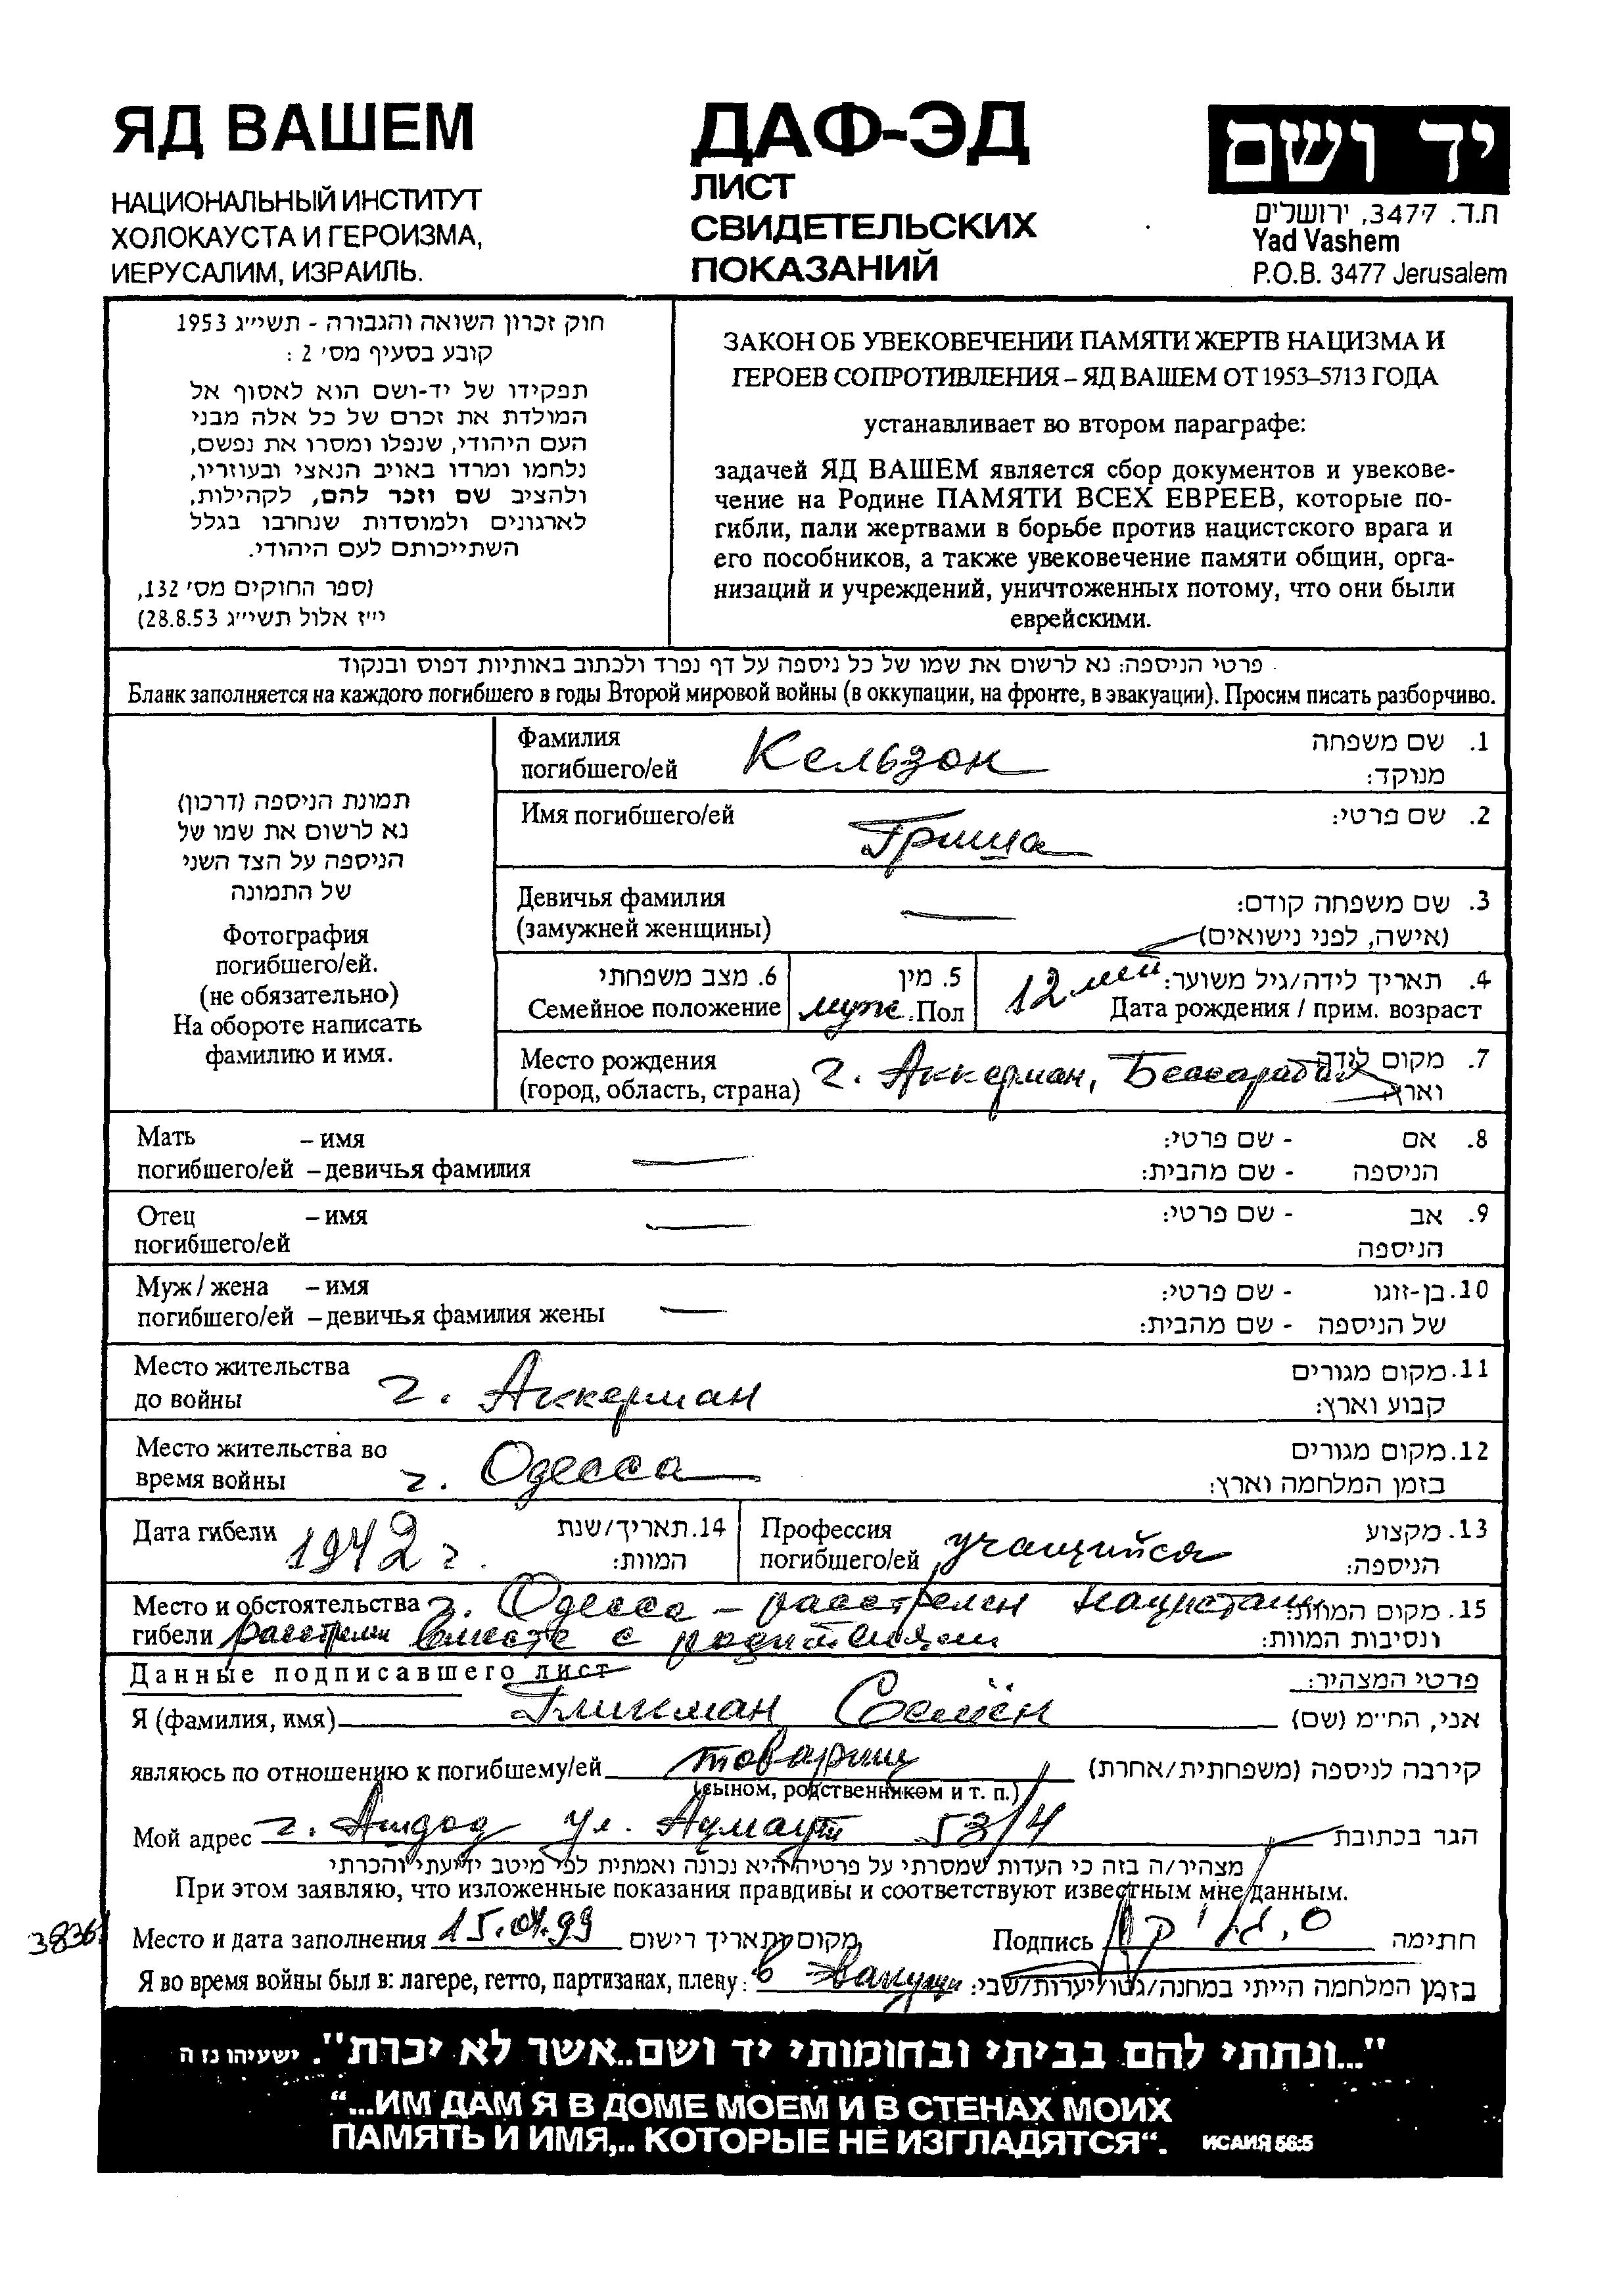 ЯД ВАШЕМ
НАЦИОНАЛЬНЫЙ ИНСТИТУТ
ХОЛОКАУСТА И ГЕРОИЗМА,
ИЕРУСАЛИМ, ИЗРАИЛЬ.
ДАФ-ЭД
ЛИСТ
СВИДЕТЕЛЬСКИХ
ПОКАЗАНИЙ
יד ושם
ת.ד. 3477, ירושלים
Yad Vashem
P.O.B. 3477 Jerusalem
חוק זכרון השואה והגבורה - תשי״ג 1953
קובע בסעיף מס׳ 2 :
תפקידו של יד-ושם הוא לאסוף אל
המולדת את זכרם של כל אלה מבני
העם היהודי, שנפלו ומסרו את נפשם,
נלחמו ומרדו באויב הנאצי ובעוזריו,
ולהציב שם וזכר להם, לקהילות,
לארגונים ולמוסדות שנחרבו בגלל
השתייכותם לעם היהודי.
(ספר החוקים מס׳ 132,
י״ז אלול תשי״ג 28.8.53)
ЗАКОН ОБ УВЕКОВЕЧЕНИИ ПАМЯТИ ЖЕРТВ НАЦИЗМА И
ГЕРОЕВ СОПРОТИВЛЕНИЯ – ЯД ВАШЕМ ОТ 1953–5713 ГОДА
устанавливает во втором параграфе:
задачей ЯД ВАШЕМ является сбор документов и увекове-
чение на Родине ПАМЯТИ ВСЕХ ЕВРЕЕВ, которые по-
гибли, пали жертвами в борьбе против нацистского врага и
его пособников, а также увековечение памяти общин, орга-
низаций и учреждений, уничтоженных потому, что они были
еврейскими.
פרטי הניספה: נא לרשום את שמו של כל ניספה על דף נפרד ולכתוב באותיות דפוס ובנקוד
Бланк заполняется на каждого погибшего в годы Второй мировой войны (в оккупации, на фронте, в эвакуации). Просим писать разборчиво.
תמונת הניספה (דרכון)
נא לרשום את שמו של
הניספה על הצד השני
של התמונה
Фотография
погибшего/ей.
(не обязательно)
На обороте написать
фамилию и имя.
Фамилия
погибшего/ей Кельзон
1. שם משפחה
מנוקד:
Имя погибшего/ей Гриша 2. שם פרטי:
Девичья фамилия
(замужней женщины) —
3. שם משפחה קודם:
(אישה, לפני נישואים)
6. מצב משפחתי
Семейное положение
5. מין
муж. Пол
4. תאריך לידה/גיל משוער:
12 лет Дата рождения / прим. возраст
Место рождения
(город, область, страна) г. Аккерман, Бессарабия
7. מקום לידה
וארץ
Мать – имя
погибшего/ей – девичья фамилия —
8. אם - שם פרטי:
הניספה - שם מהבית:
Отец – имя
погибшего/ей —
9. אב - שם פרטי:
הניספה
Муж / жена – имя
погибшего/ей – девичья фамилия жены —
10. בן-זוגו - שם פרטי:
של הניספה - שם מהבית:
Место жительства
до войны г. Аккерман
11. מקום מגורים
קבוע וארץ:
Место жительства во
время войны г. Одесса
12. מקום מגורים
בזמן המלחמה וארץ:
Дата гибели 1942 г.
14. תאריך/שנת
המוות:
Профессия
погибшего/ей учащийся
13. מקצוע
הניספה:
Место и обстоятельства г. Одесса – расстрелен нацистами
гибели расстрелян вместе с родителями
15. מקום המוות:
ונסיבות המוות:
Данные подписавшего лист פרטי המצהיר:
Я (фамилия, имя) Гликман Семён אני, הח״מ (שם)
являюсь по отношению к погибшему/ей товарищ קירבה לניספה (משפחתית/אחרת)
(сыном, родственником и т. п.)
Мой адрес г. Ашдод ул. Ацмаут 53/4 הגר בכתובת
מצהיר/ה בזה כי העדות שמסרתי על פרטיה היא נכונה ואמתית לפי מיטב ידיעתי והכרתי
При этом заявляю, что изложенные показания правдивы и соответствуют известным мне данным.
Место и дата заполнения 15.04.99 מקום ותאריך רישום Подпись חתימה
Я во время войны был в: лагере, гетто, партизанах, плену: в эвакуации בזמן המלחמה הייתי במחנה/גטו/יערות/שבי:
"...ונתתי להם בביתי ובחומותי יד ושם..אשר לא יכרת". ישעיהו נז ה
“...ИМ ДАМ Я В ДОМЕ МОЕМ И В СТЕНАХ МОИХ
ПАМЯТЬ И ИМЯ,.. КОТОРЫЕ НЕ ИЗГЛАДЯТСЯ“. ИСАИЯ 56:5